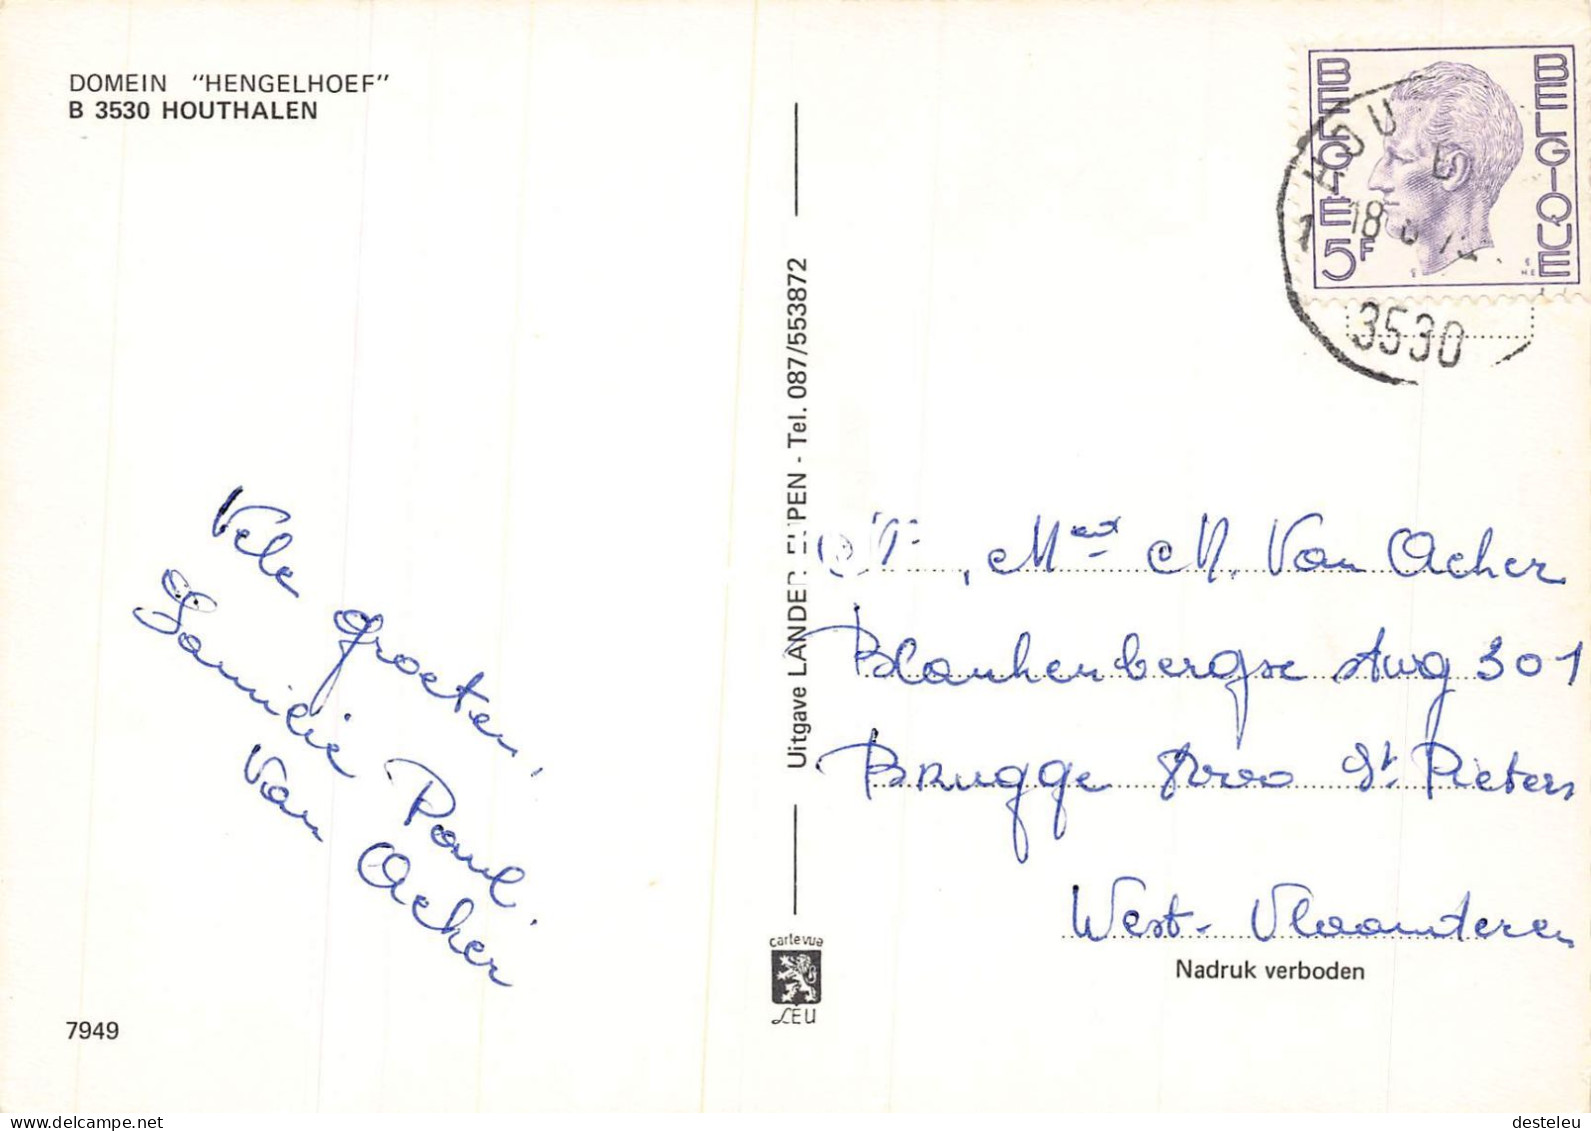 DOMEIN "HENGELHOEF"
B 3530 HOUTHALEN
BELGIE
BELGIQUE
5F
HOU
18
3530
Vele groeten,
Familie Paul.
Van Acker
Uitgave LANDER EUPEN - Tel. 087/553872
cartevue
LEU
M. Van Acker
Blankenbergse stwg 301
Brugge St Pieters
West-Vlaanderen
Nadruk verboden
7949
delcampe.net
desteleu